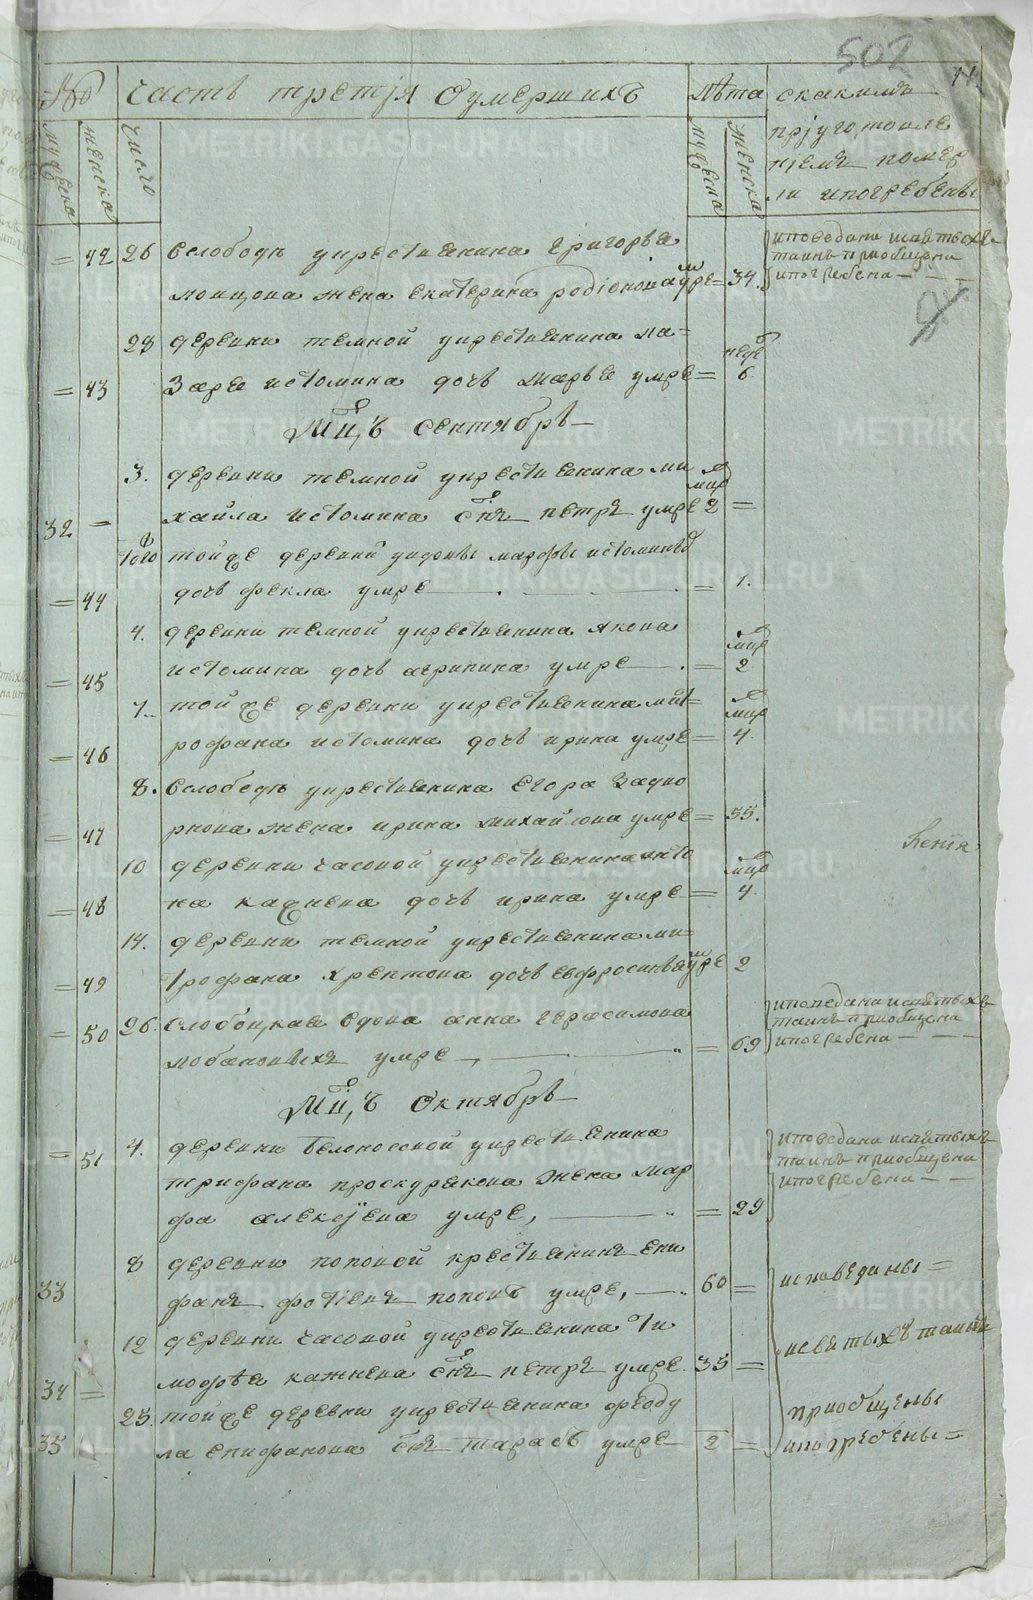 502
11
№ часть третiя о умершихъ лѣта
мужеска женска число мужеска женска
скакимъ
прiуготовле
нiемъ помер
ли ипогребены
= 42 26 слободы укрестьянина григорья
жена екатерина родiонова умре = 34.
исповедана исвятыхъ
таинъ приобщена
ипогребена
28 деревни темной укрестьянина ла=
неде
= 43 заря истомина дочь марья умре = 6
Мцъ сентябрь
3. деревни темной укрестьянина ми
32 = хайла истомина снъ петръ умре 2 =
того тойже деревни увдовы марфы истоминой
= 44 дочь фекла умре = 1.
4. деревни темной укрестьянина якова
= 45 истомина дочь агрипина умре = 2
7. тойже деревни укрестьянина мит=
= 46 рофана истомина дочь ирина умре = 4
8. слободы укрестьянина егора задво
= 47 рнова жена ирина михайлова умре = 55.
10 деревни часовой укрестьянина анто
= 48 на кажнева дочь ирина умре = 4
14. деревни темной укрестьянина ми=
= 49 трофана дочь евфросинья умре 2
= 50 26. слободцкая вдова анна герасимова
лобановыхъ умре = 69
исповедана исвятыхъ
таинъ приобщена
ипогребена
Мцъ Октябрь
= 51 4. деревни белоносовой укрестьянина
трифана проскурякова жена мар
фа алексѣева умре, = 29
исповедана исвятыхъ
таинъ приобщена
ипогребена
8 деревни поповой крестьянинъ епи
33 фанъ фотiевъ поповъ умре, 60 =
исповеданы =
12 деревни часовой укрестьянина ти
34 = мофѣя кажнева снъ петръ умре 35 =
исвятыхъ таинъ
23. тойже деревни укрестьянина феоду
35 ла епифанова снъ тарасъ умре 2 =
приобщены
ипогребены =
METRIKI.GASO-URAL.RU